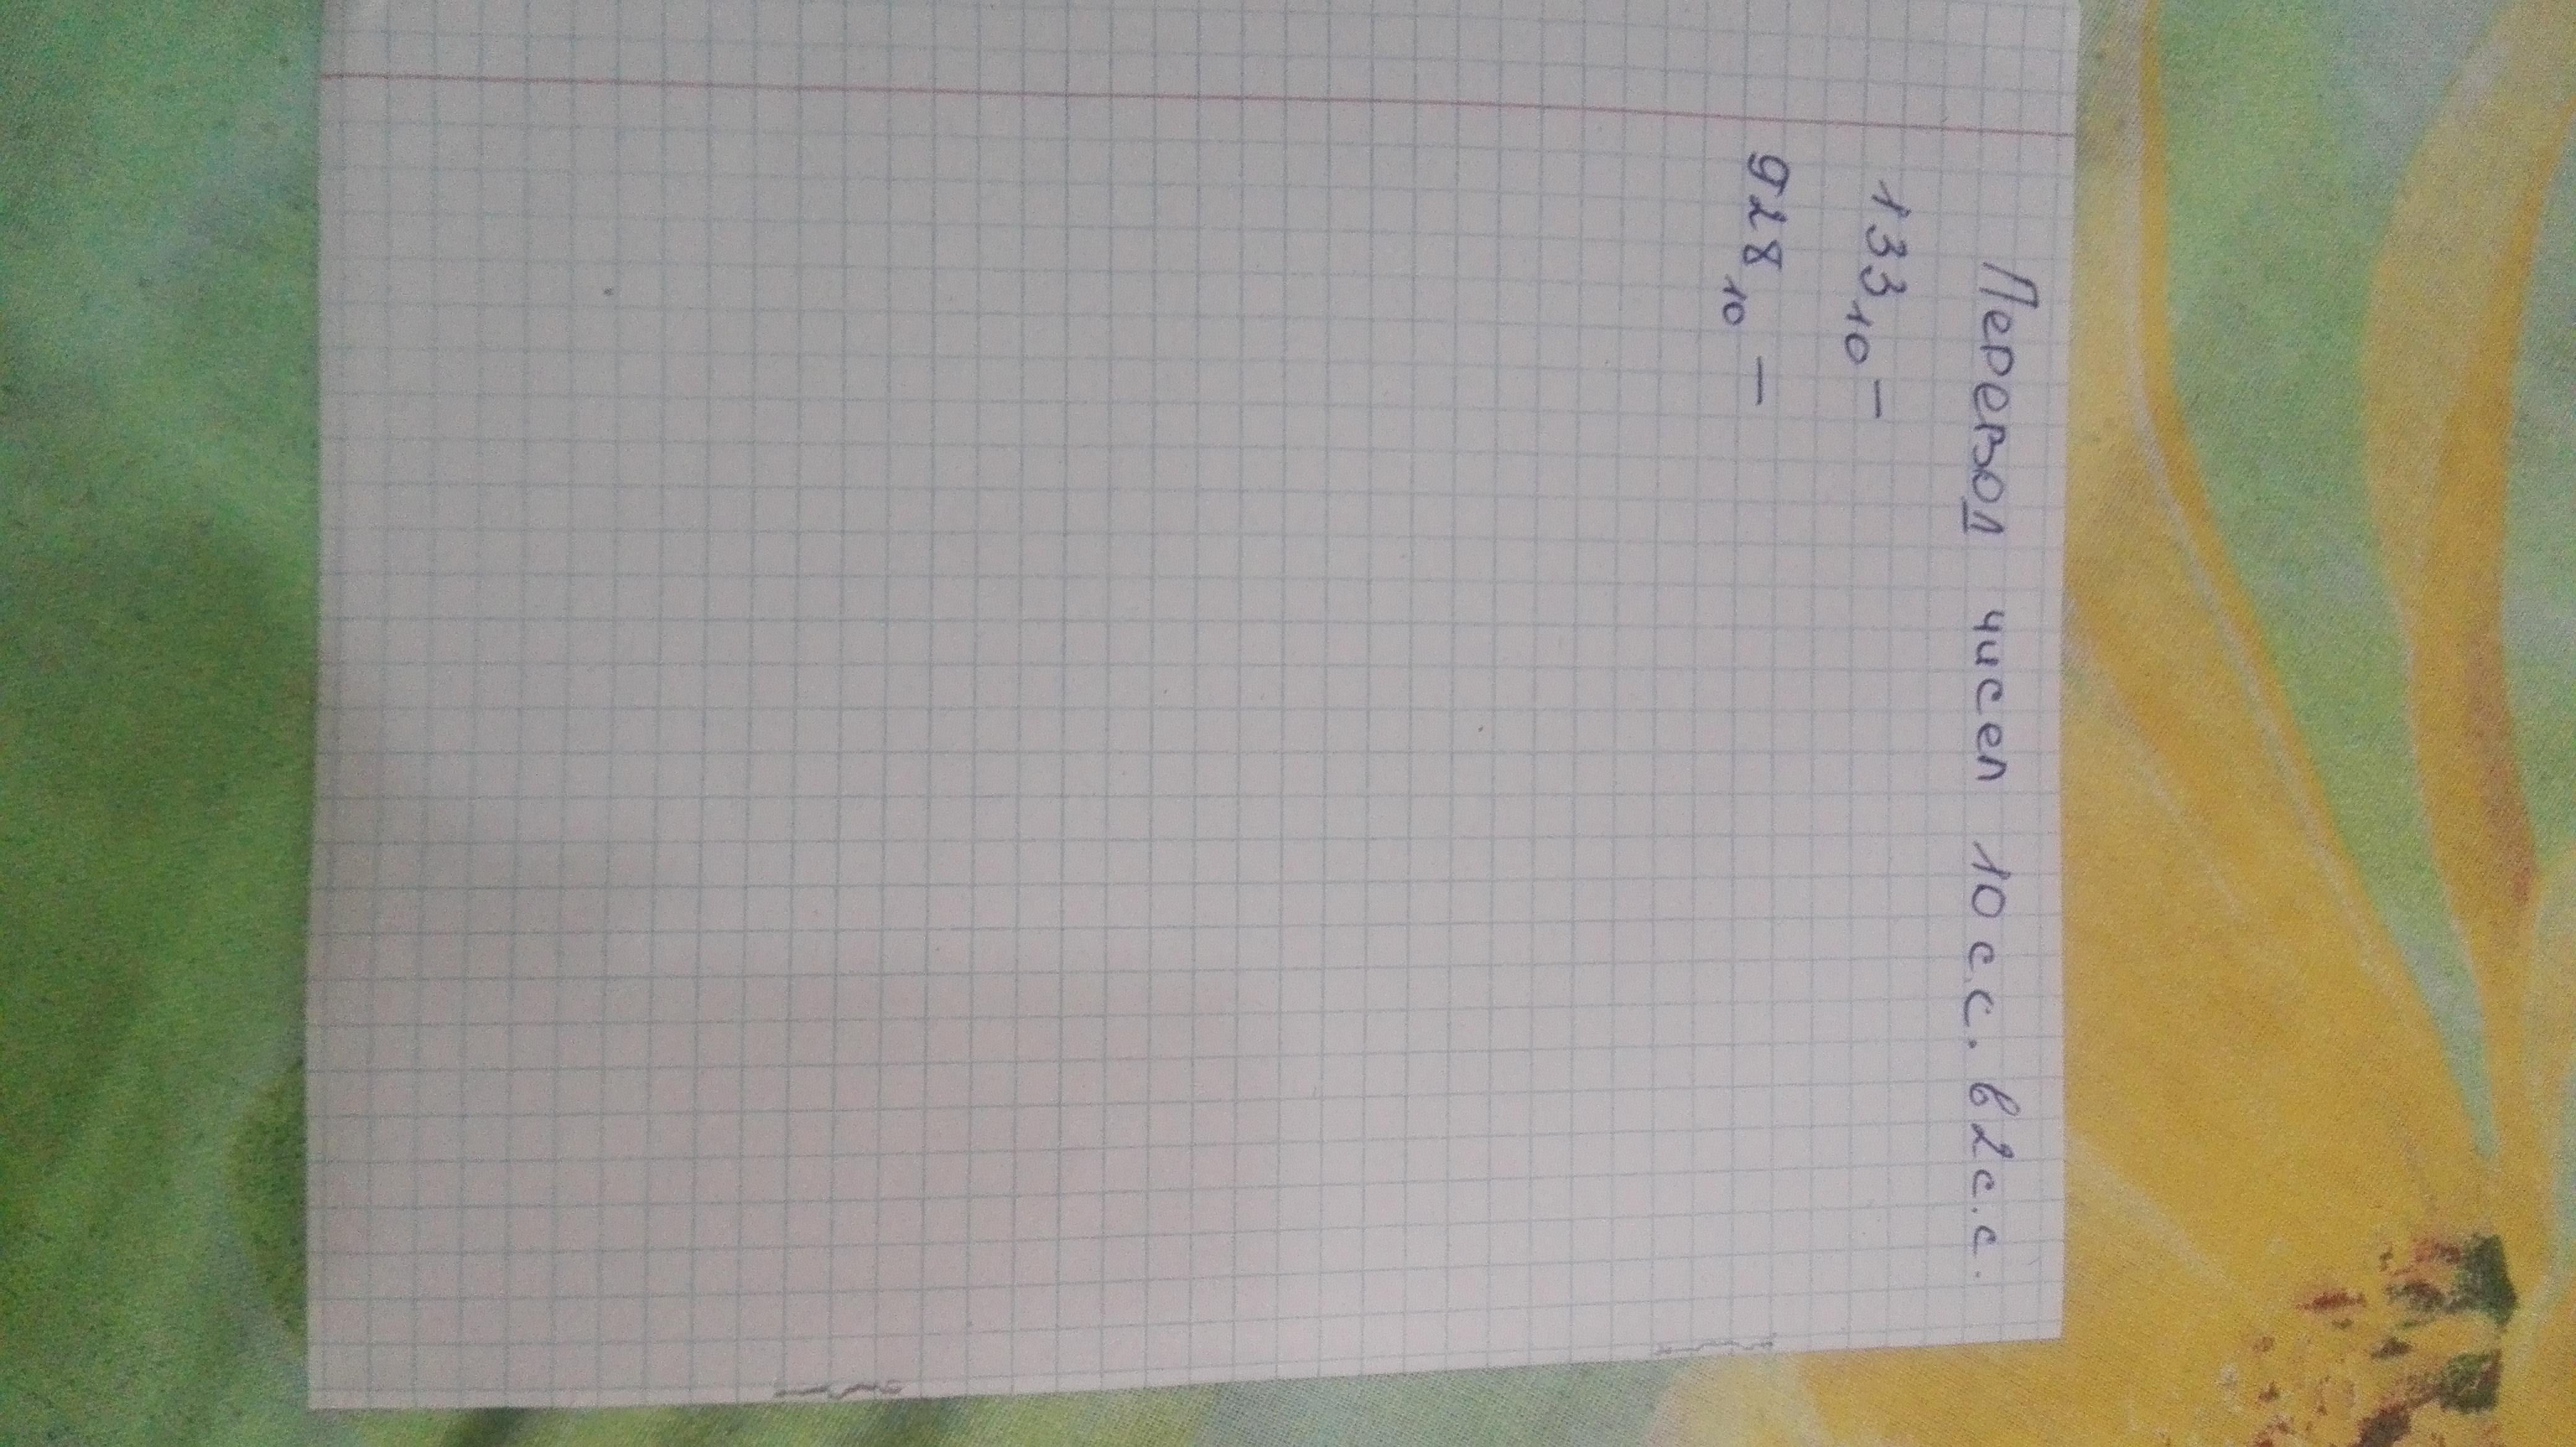 Перевод чисел 10 с.с. в 2 с.с.
133₁₀ –
928₁₀ –